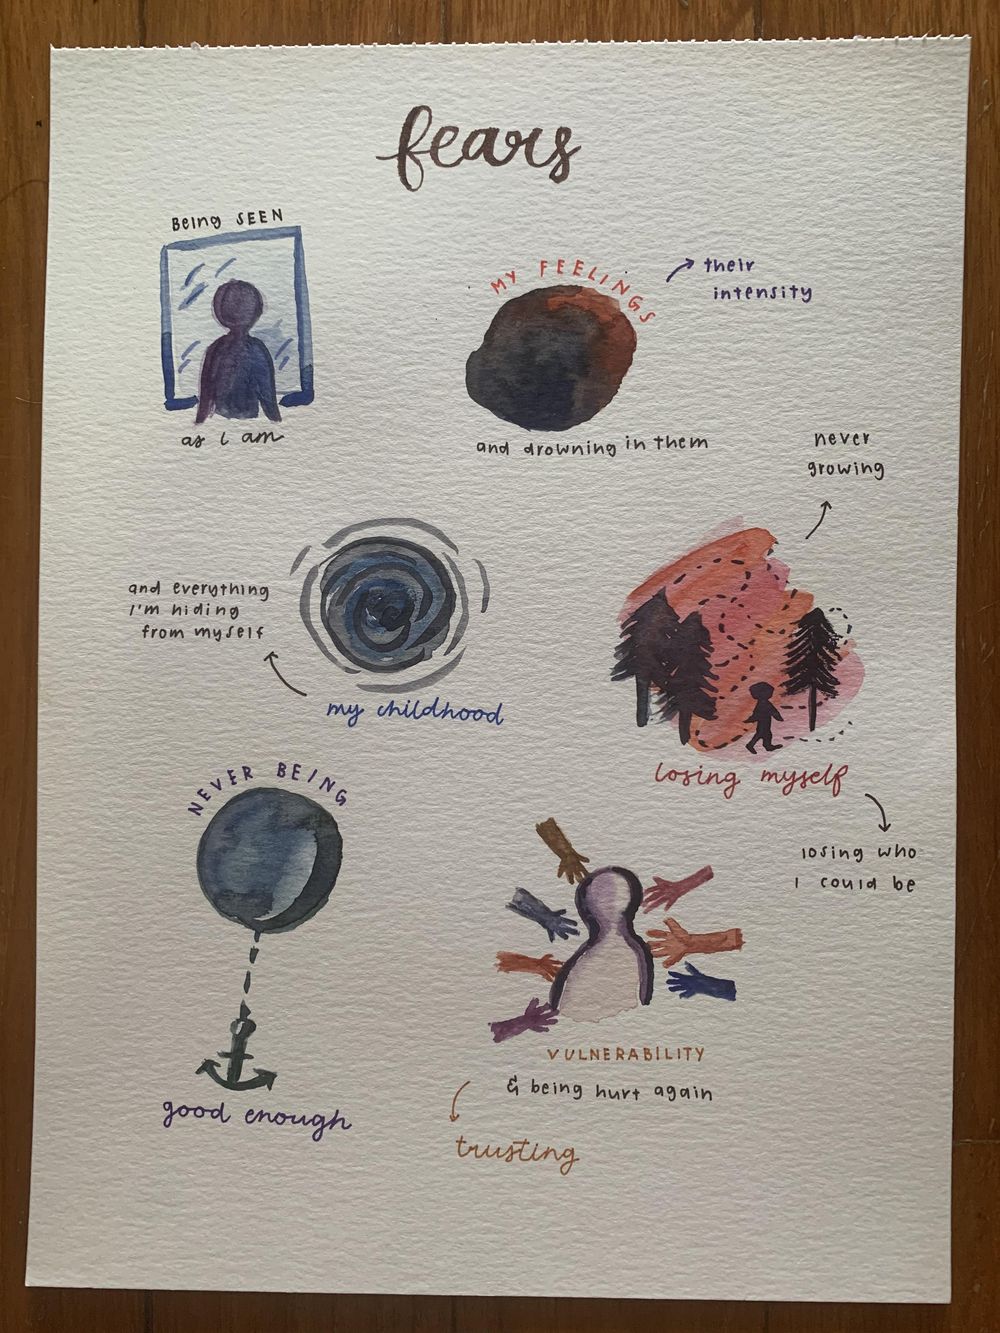 fears
Being SEEN
as i am
MY FEELINGS
their
intensity
and drowning in them
never
growing
and everything
I'm hiding
from myself
my childhood
losing myself
losing who
I could be
NEVER BEING
good enough
VULNERABILITY
& being hurt again
trusting